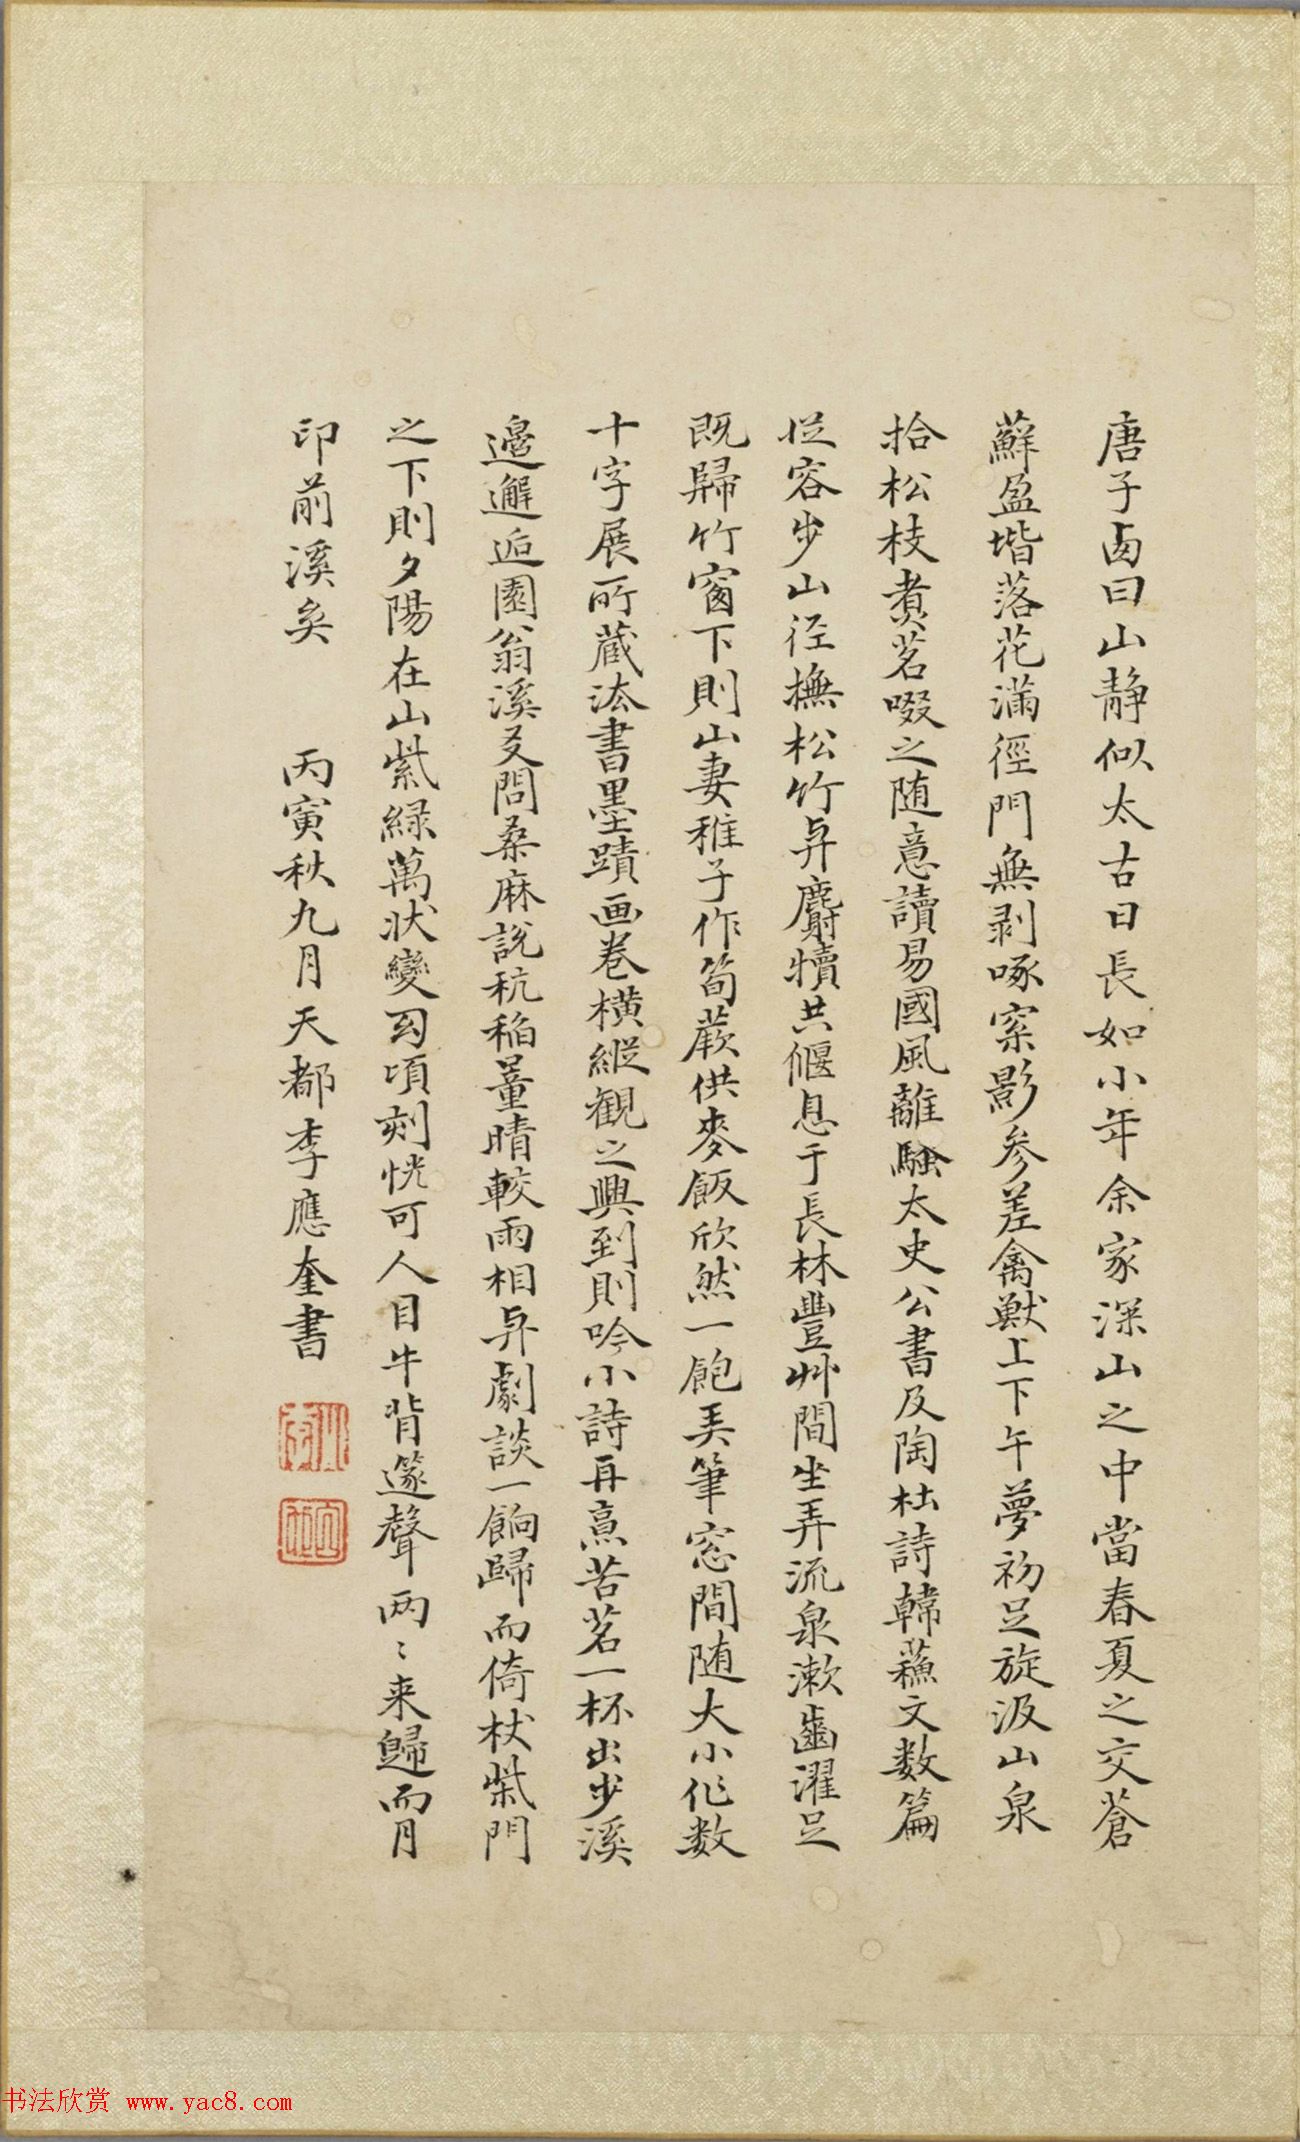 唐子西曰山静似太古日長如小年余家深山之中當春夏之交蒼
蘚盈堦落花滿徑門無剥啄案影参差禽獸上下午夢初足旋汲山泉
拾松枝煮茗啜之随意讀易國風離騷太史公書及陶杜詩韓蘇文数篇
従容步山径撫松竹与麛犢共偃息于長林豐艸間坐弄流泉漱齒濯足
既歸竹窗下則山妻稚子作筍蕨供麥飯欣然一飽弄筆窓間随大小作数
十字展所蔵法書墨蹟画卷橫縱觀之興到則吟小詩再烹苦茗一杯出步溪
邊邂逅園翁溪叟問桑麻說秔稻量晴較雨相与劇談一餉歸而倚杖柴門
之下則夕陽在山紫綠萬狀變幻頃刻恍可人目牛背篴聲两〻来歸而月
印前溪矣 丙寅秋九月天都李應奎書
书法欣赏 www.yac8.com